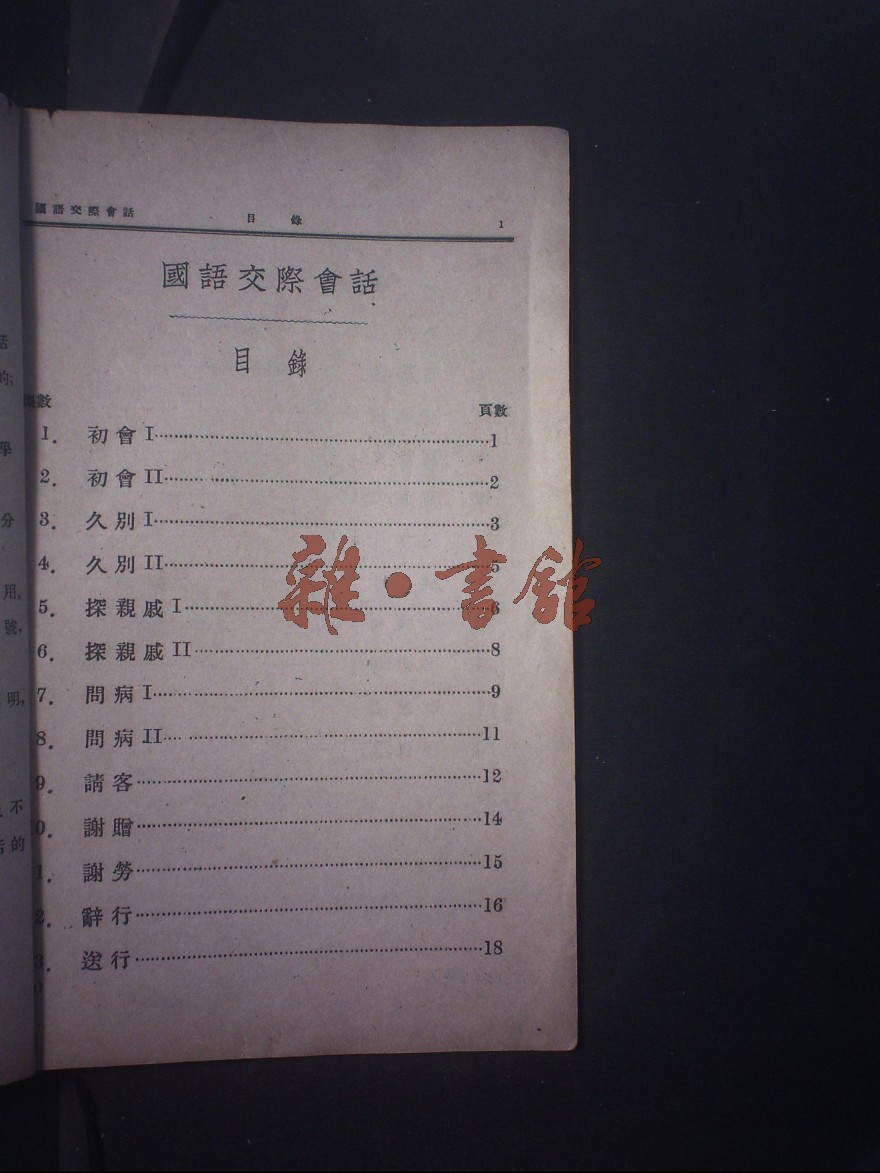 國語交際會話 目錄 1
國語交際會話
目錄
數 頁數
1. 初會 I 1
2. 初會 II 2
3. 久別 I 3
4. 久別 II 5
5. 探親戚 I 6
6. 探親戚 II 8
7. 問病 I 9
8. 問病 II 11
9. 請客 12
10. 謝贈 14
11. 謝勞 15
12. 辭行 16
13. 送行 18
雜·書館
話
的;
學
分
用,
號,
明,
不
的